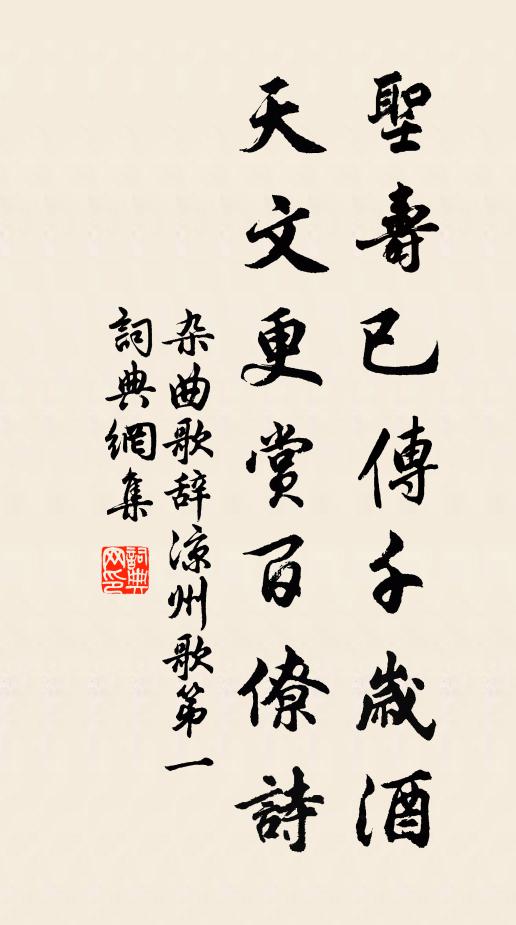 聖壽已傳千歲酒
天文更賞百僚詩
杂曲歌辞凉州歌第一
詞典網集
詞典网印